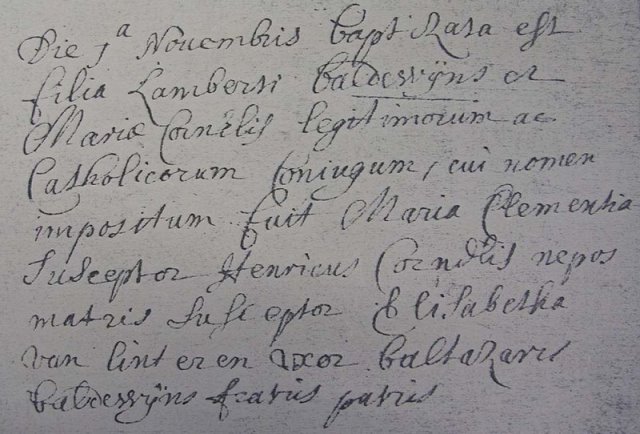 Die 1a Novembris baptizata est
filia Lamberti baldewijns et
Mariæ Cornelis legitimorum ac
Catholicorum Coniugum, cui nomen
impositum fuit Maria Clementia
Susceptor Henricus Cornelis nepos
matris Susceptor Elisabetha
van linteren uxor baltazaris
baldewijns fratris patris